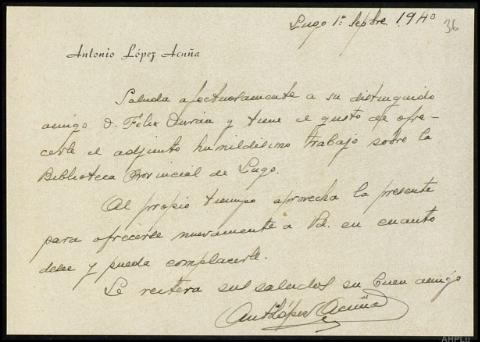 Lugo 1º Septbre 1940
36
Antonio López Acuña
Saluda afectuosamente a su distinguido
amigo D. Félix Durán y tiene el gusto de ofre-
cerle el adjunto humildísimo trabajo sobre la
Biblioteca Provincial de Lugo.
Al propio tiempo aprovecha la presente
para ofrecerse nuevamente a Vd. en cuanto
desee y pueda complacerle.
Le reitera sus saludos su buen amigo
Ant. López Acuña
AHPLU